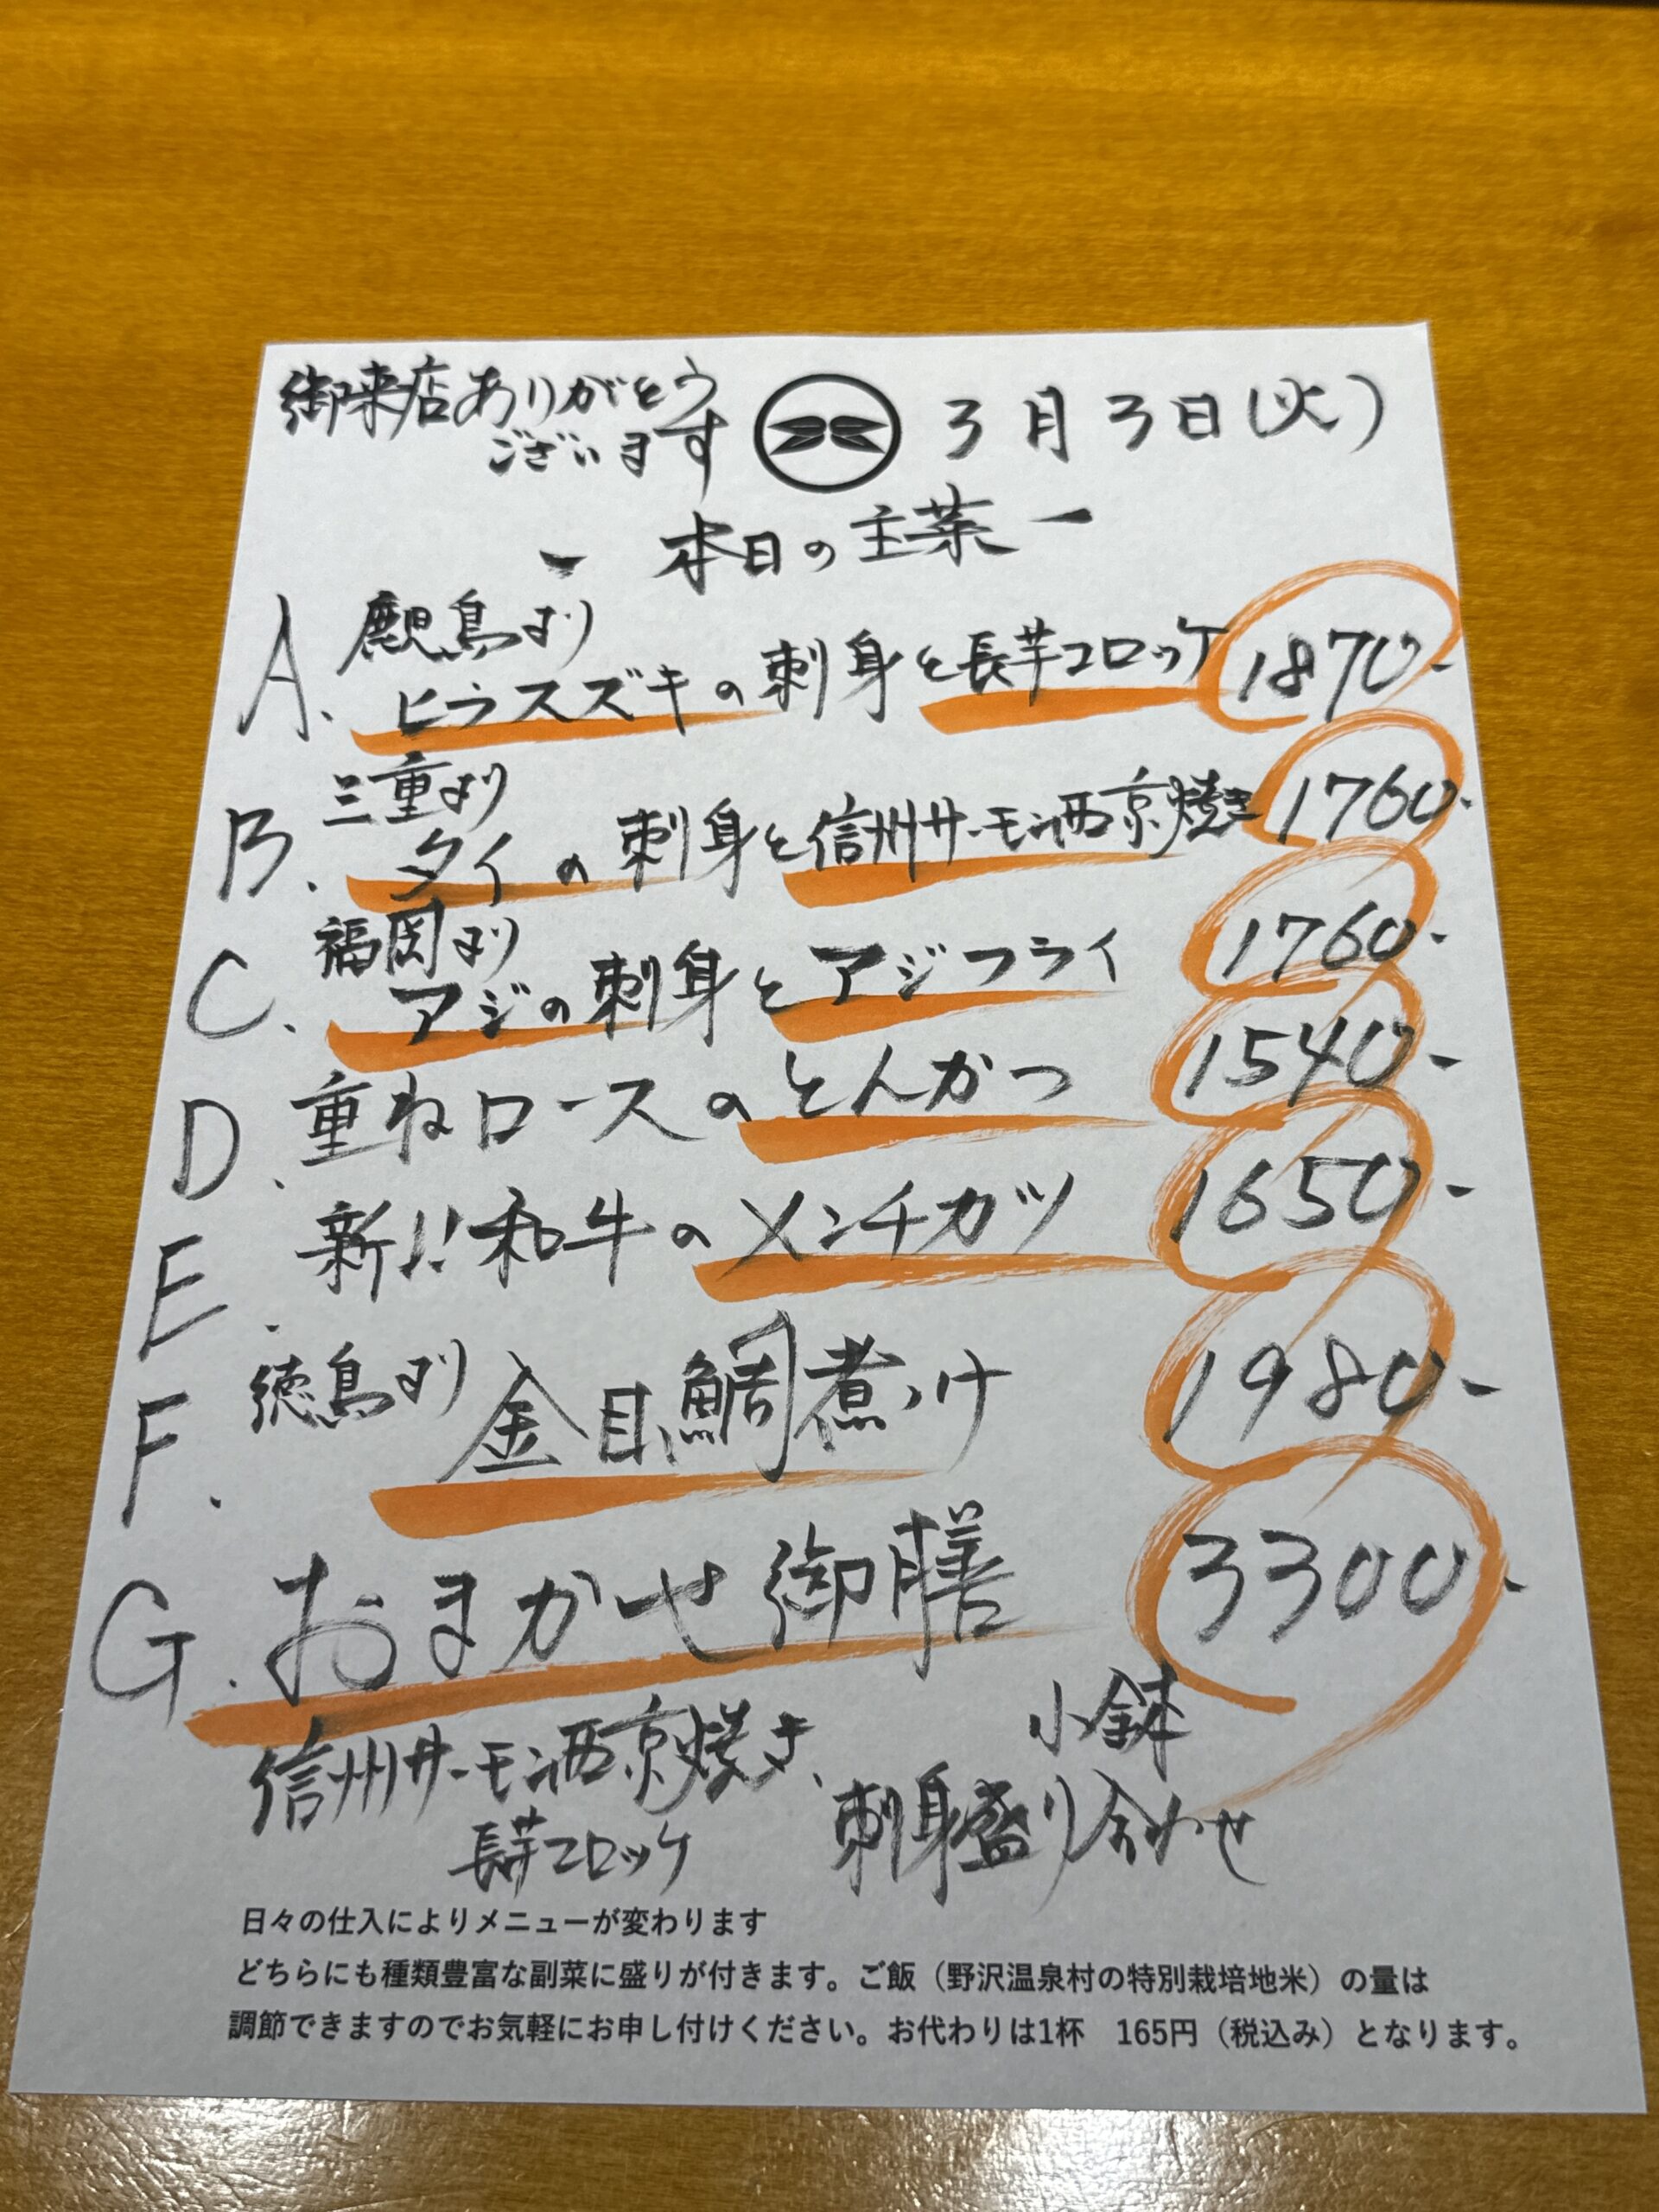 御来店ありがとう
ございます
3月3日(火)
ー 本日の主菜 ー
A. 鹿児島より
ヒラスズキの刺身と長芋コロッケ 1870-
B. 三重より
タイの刺身と信州サーモン西京焼き 1760-
C. 福岡より
アジの刺身とアジフライ 1760-
D. 重ねロースのとんかつ 1540-
E. 新!!和牛のメンチカツ 1650-
F. 徳島より 金目鯛煮つけ 1980-
G. おまかせ御膳 3300-
小鉢
信州サーモン西京焼き、刺身盛り合わせ
長芋コロッケ
日々の仕入によりメニューが変わります
どちらにも種類豊富な副菜に盛りが付きます。ご飯（野沢温泉村の特別栽培地米）の量は
調節できますのでお気軽にお申し付けください。お代わりは1杯　165円（税込み）となります。